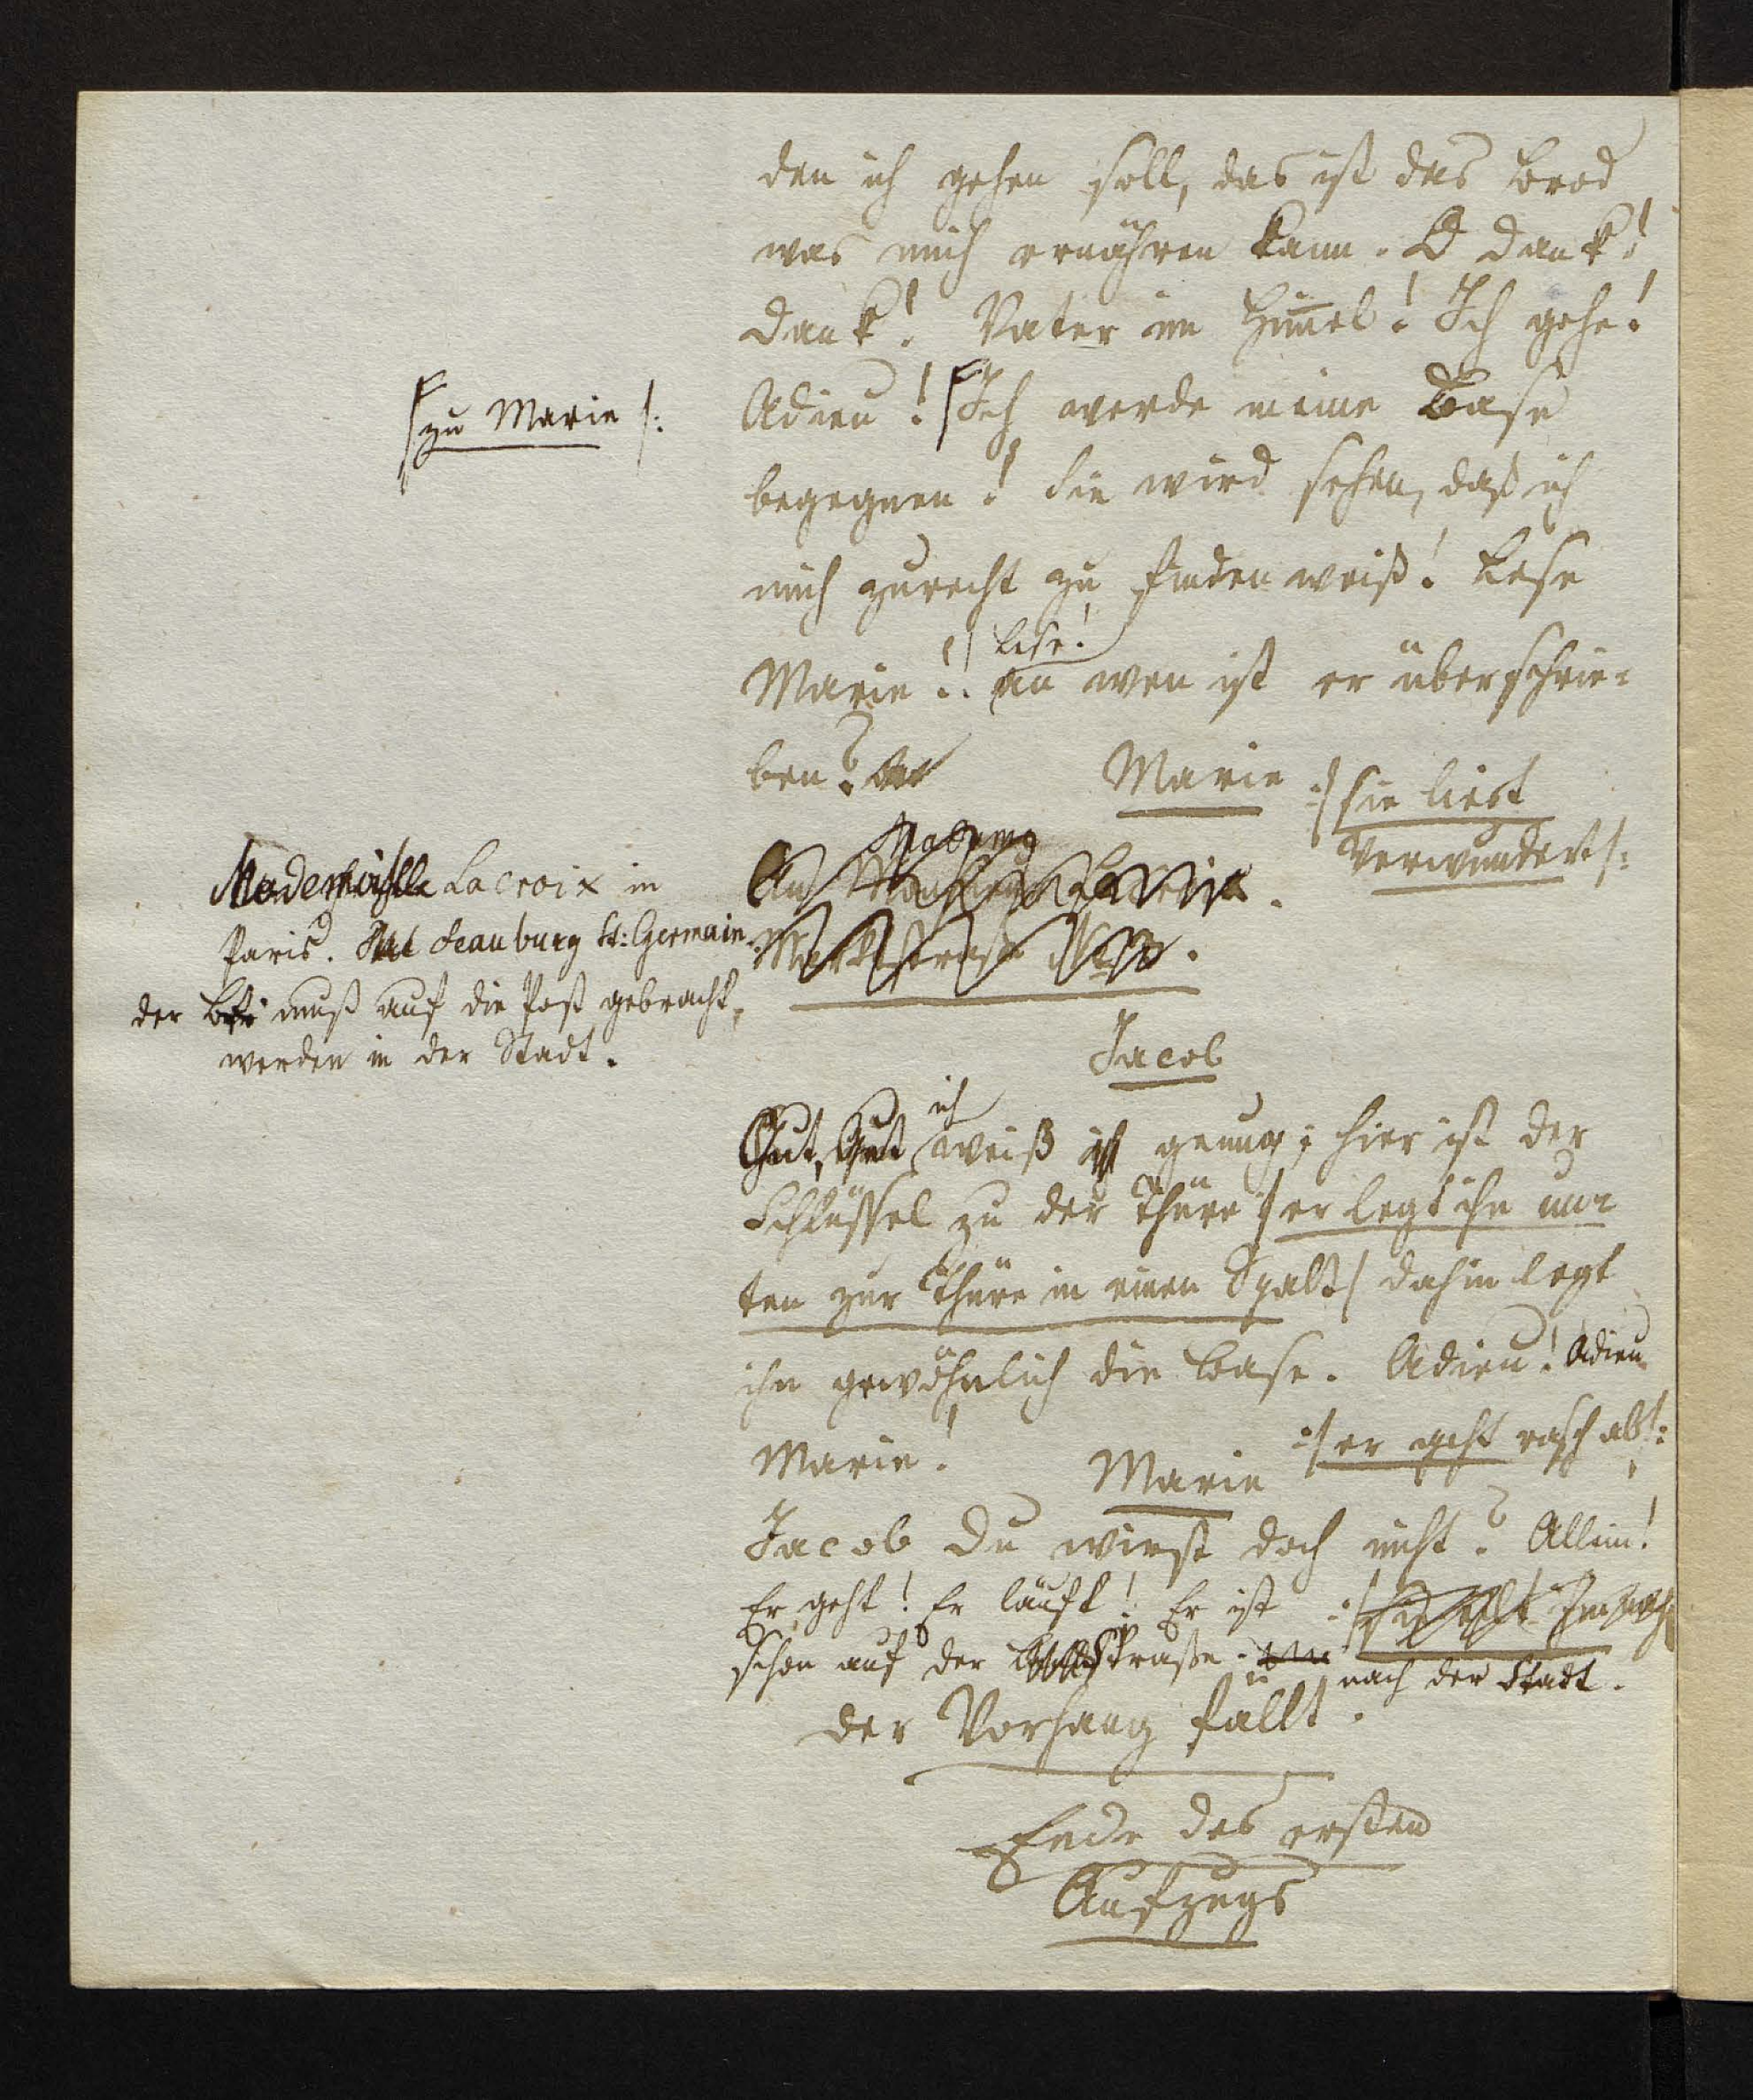 den ich gehen soll, das ist das Brod
was mich ernähren kann. O Dank!
Dank! Vater im Himel! Ich gehe!
/zu Marie/:
Adieu! Ich werde meine Base
begegnen! Sie wird sehen, daß ich
mich zurecht zu finden weiß! Lese
lese!
Marie! an wen ist er überschrie-
ben?
Marie :/sie liest
verwundert/:
Mademoiselle Lacroix in
Paris. Feauburg St: Germain.
der muß auf die Post gebracht
werden in der Stadt.
An
Marktstraße
Jacob
ich
Gut, Gut weiß genug; hier ist der
Schlüssel zu der Thüre :/er legt ihn un-
ten zur Thüre in einen Spalt/ dahin legt
ihn gewöhnlich die Base. Adieu! Adieu
Marie! :/er geht rasch ab/:
Marie
Jacob Du wirst doch nicht? Allein!
Er geht! Er läuft! Er ist
schon auf der Straße nach der Stadt.
der Vorhang fällt.
Ende des ersten
Aufzugs